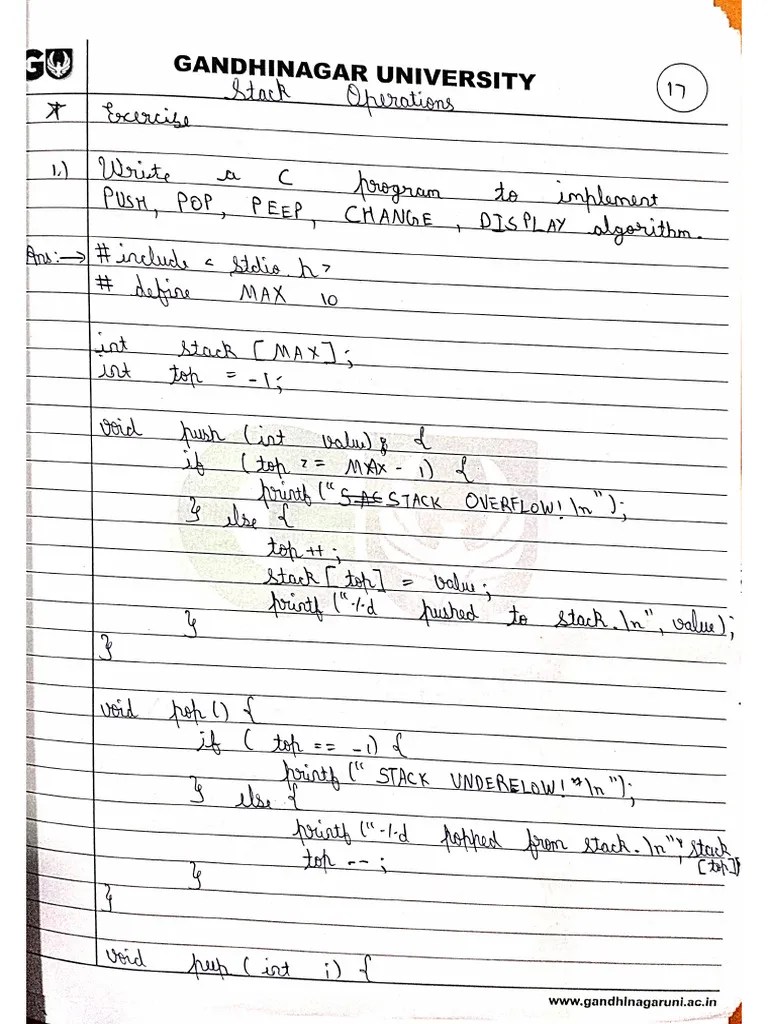 GU
GANDHINAGAR UNIVERSITY
17
Stack Operations
* Exercise
1.) Write a C program to implement
PUSH, POP, PEEP, CHANGE, DISPLAY algorithm.
Ans:→ # include < stdio.h>
# define MAX 10
int stack [MAX];
int top = -1;
void push (int value) {
if (top == MAX - 1) {
printf ("STACK OVERFLOW! \n");
} else {
top ++;
stack [top] = value;
printf ("%d pushed to stack. \n", value);
}
}
void pop () {
if ( top == -1) {
printf (" STACK UNDERELOW! \n");
} else {
printf ("%d popped from stack. \n", stack
[top])
top --;
}
}
void peep (int i) {
www.gandhinagaruni.ac.in